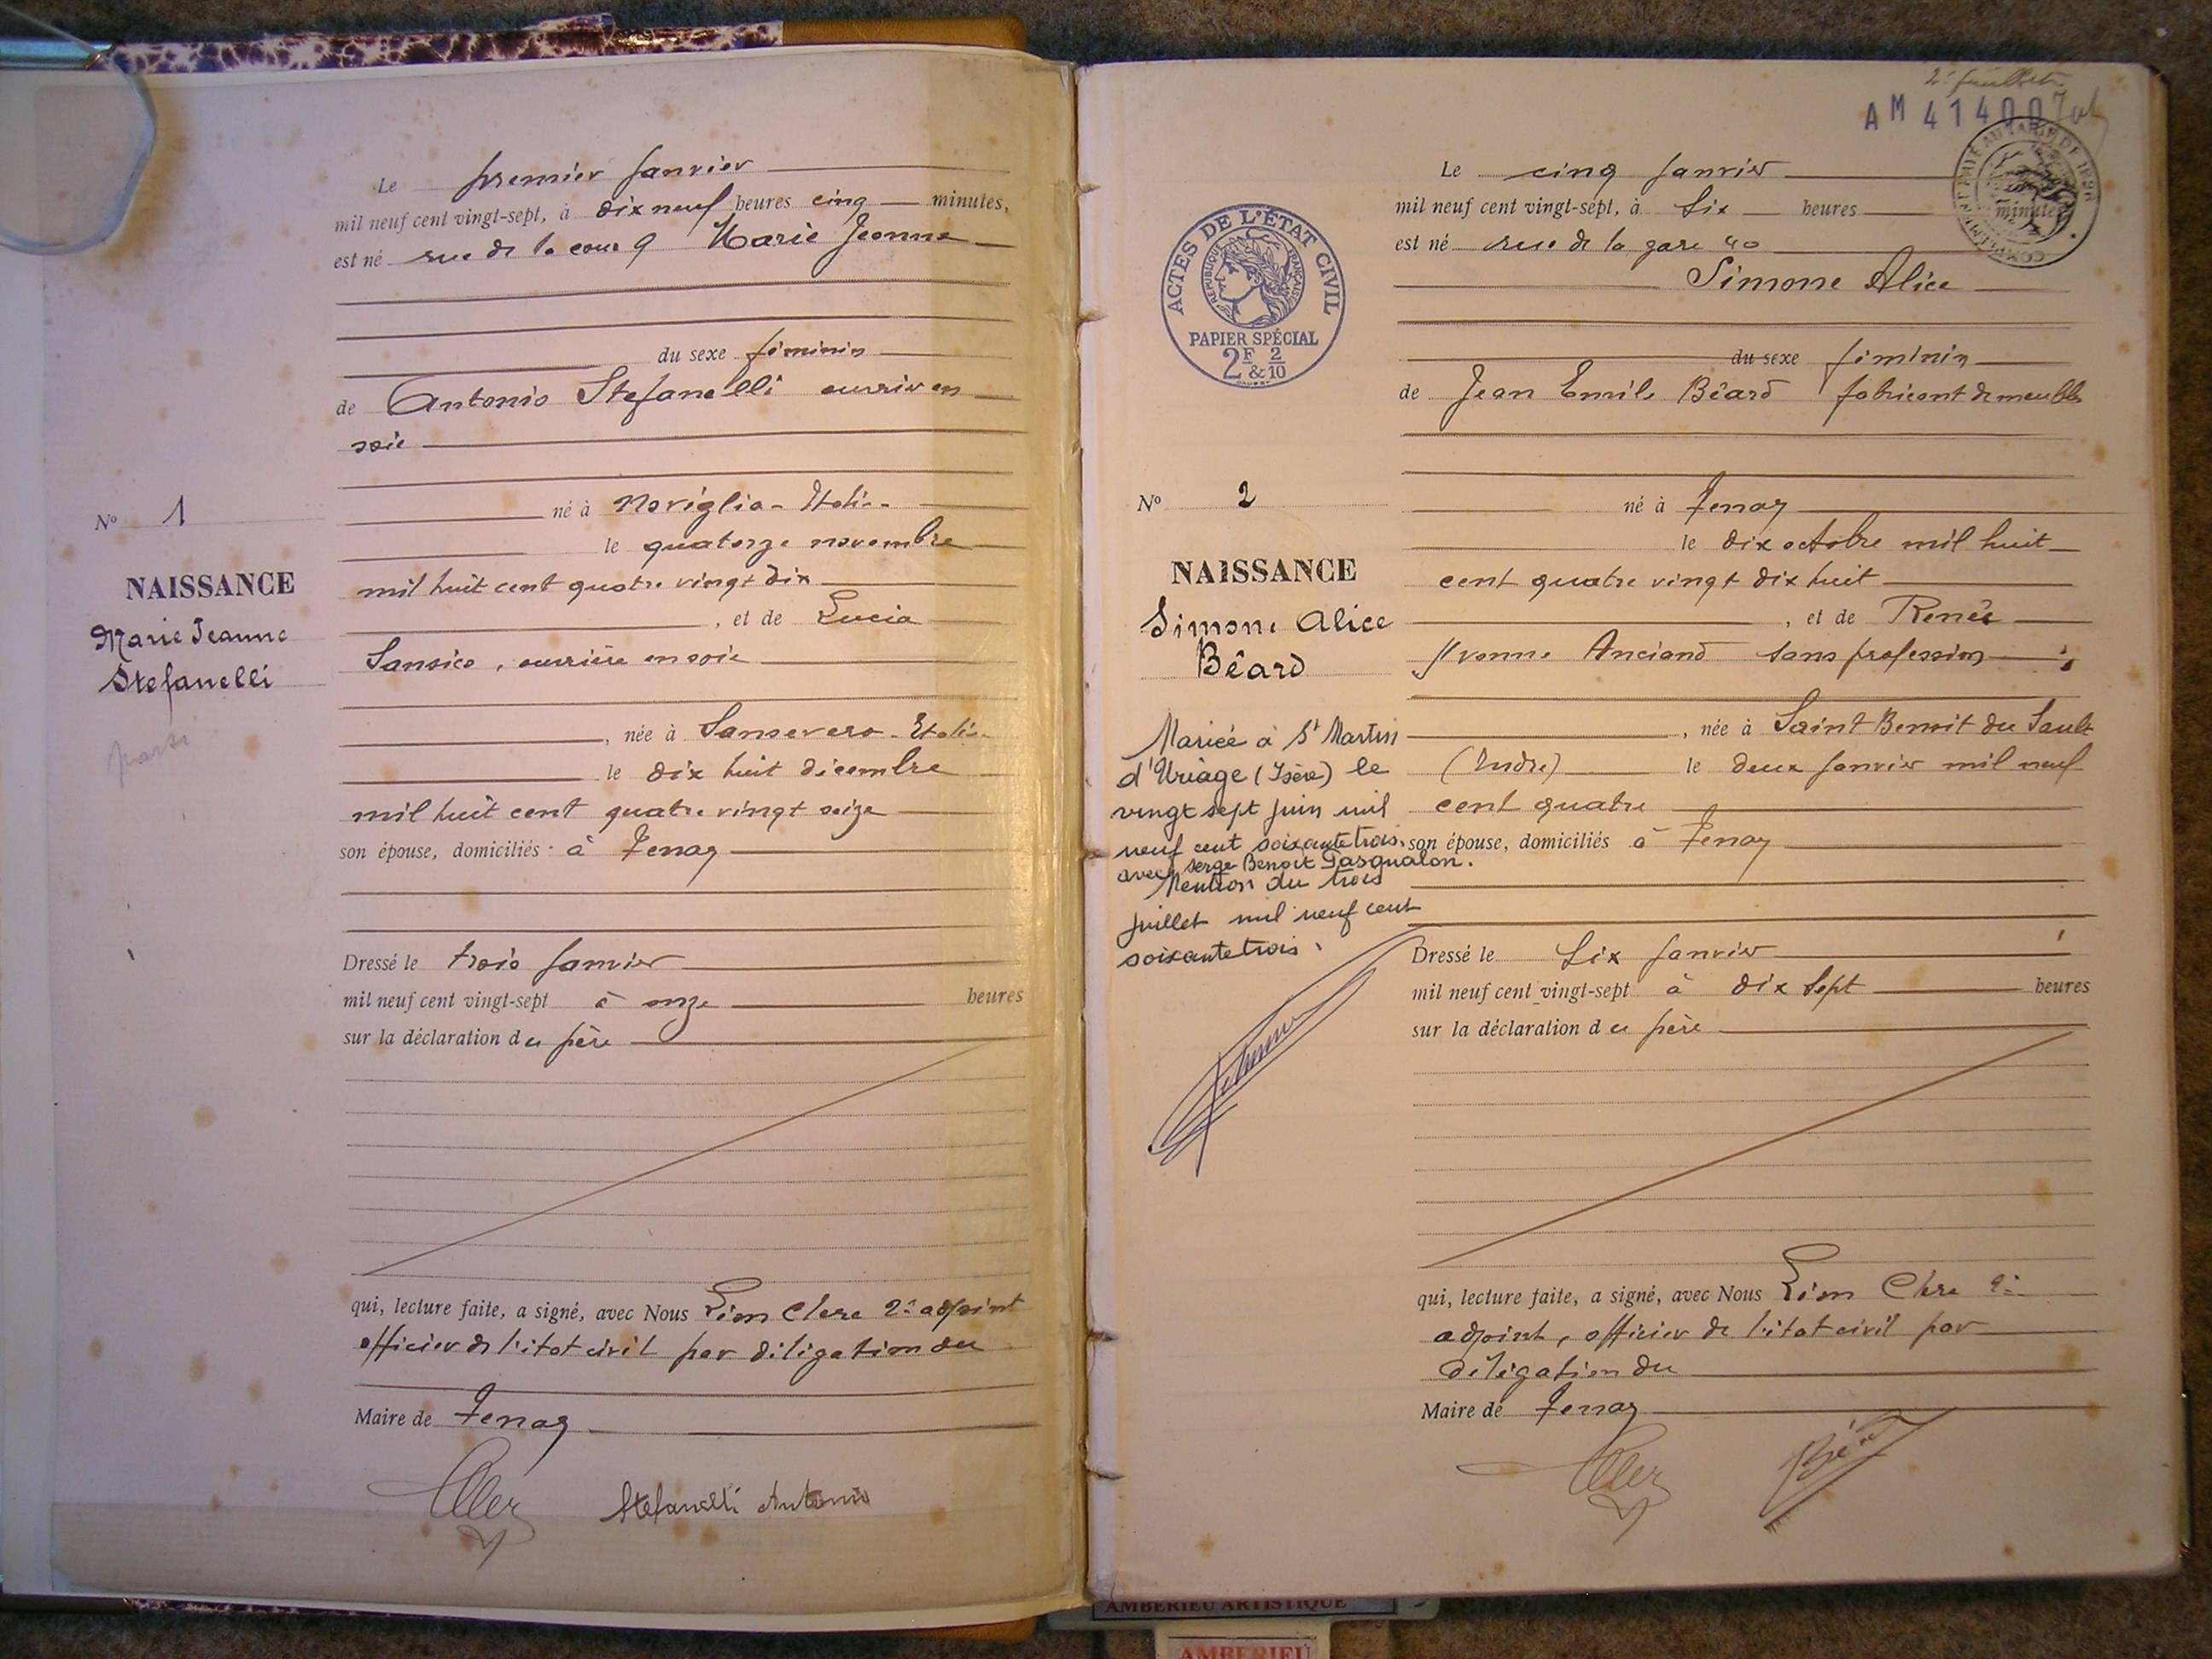 Le premier Janvier
mil neuf cent vingt-sept, à dix neuf heures cinq minutes,
est né rue de la cour 9 Marie Jeanne
du sexe féminin
de Antonio Stefanelli ouvrier en
soie
né à Noviglia - Italie -
le quatorze novembre
mil huit cent quatre vingt dix
, et de Lucia
Sansico, ouvrière en soie
, née à Sansevero - Italie
le dix huit décembre
mil huit cent quatre vingt seize
son épouse, domiciliés à Tenay
Dressé le trois Janvier
mil neuf cent vingt-sept à onze heures
sur la déclaration du père
qui, lecture faite, a signé, avec Nous Léon Clerc 2e adjoint
officier de l'état civil par délégation du
Maire de Tenay
Stefanelli Antonio
No 1
NAISSANCE
Marie Jeanne
Stefanelli
AM 41400
Le cinq Janvier
mil neuf cent vingt-sept, à Six heures minutes
est né rue de la gare 40
Simone Alice
du sexe féminin
de Jean Emile Béard fabricant de meubles
né à Tenay
le dix octobre mil huit
cent quatre vingt dix huit
, et de Renée
Yvonne Anciand sans profession
, née à Saint Benoit du Sault
(Indre) le deux Janvier mil neuf
cent quatre
son épouse, domiciliés à Tenay
Dressé le Six Janvier
mil neuf cent vingt-sept à dix Sept heures
sur la déclaration du père
qui, lecture faite, a signé, avec Nous Léon Clerc 2e
adjoint, officier de l'état civil par
délégation du
Maire de Tenay
ACTES DE L'ÉTAT CIVIL
RÉPUBLIQUE FRANÇAISE
PAPIER SPÉCIAL
2F & 2/10
No 2
NAISSANCE
Simone Alice
Béard
Mariée à St Martin
d'Uriage (Isère) le
vingt sept Juin mil
neuf cent soixante trois.
avec Serge Benoit Pasqualon.
Mention du trois
Juillet mil neuf cent
soixante trois.
AMBERIEU ARTISTIQUE
AMBERIEU